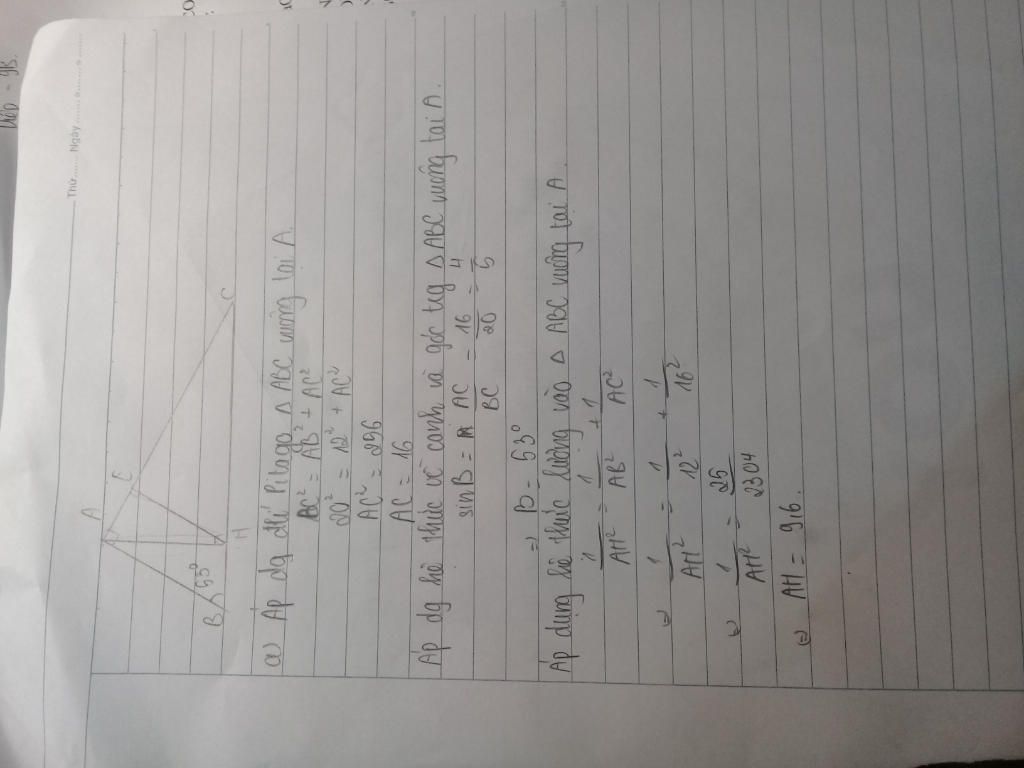 Lớp - 9B.
Thứ ....... Ngày .......
A
E
B 53° H C
a) Áp dg đlí Pitago Δ ABC vuông tại A.
BC² = AB² + AC²
20² = 12² + AC²
AC² = 256
AC = 16
Áp dg hệ thức về cạnh và góc trg Δ ABC vuông tại A.
sinB = AC/BC = 16/20 = 4/5
⇒ B = 53°
Áp dụng hệ thức lượng vào Δ ABC vuông tại A.
1/AH² = 1/AB² + 1/AC²
⇔ 1/AH² = 1/12² + 1/16²
⇔ 1/AH² = 25/2304
⇔ AH = 9,6.